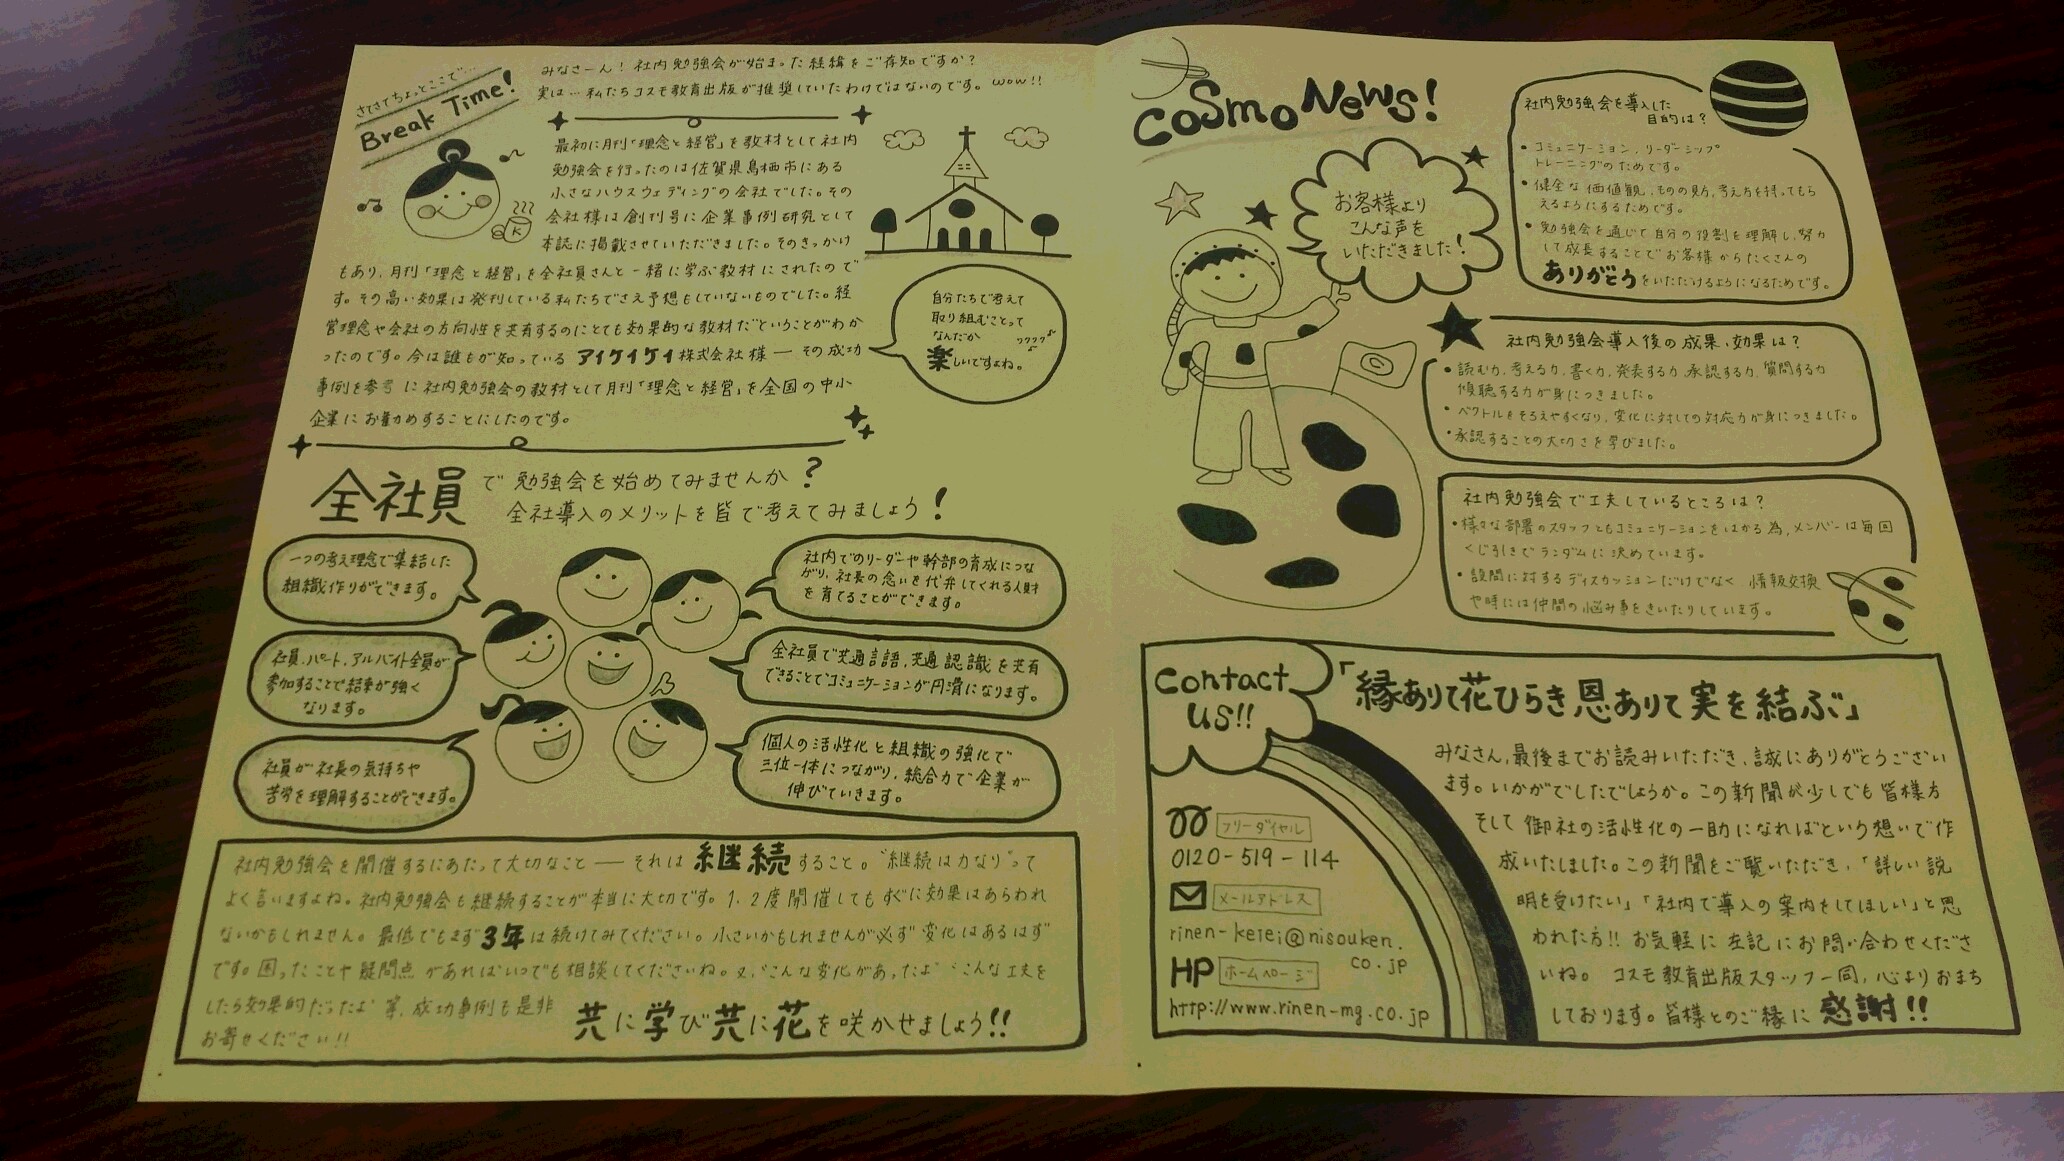 さてさてちょっとここで…
Break Time!
みなさーん！社内勉強会が始まった経緯をご存知ですか？
実は…私たちコスモ教育出版が推奨していたわけではないのです。wow!!
最初に月刊「理念と経営」を教材として社内
勉強会を行ったのは佐賀県鳥栖市にある
小さなハウスウェディングの会社でした。その
会社様は創刊号に企業事例研究として
本誌に掲載させていただきました。そのきっかけ
もあり、月刊「理念と経営」を全社員さんと一緒に学ぶ教材にされたので
す。その高い効果は発刊している私たちでさえ予想もしていないものでした。経
営理念や会社の方向性を共有するのにとても効果的な教材だということがわか
ったのです。今は誰もが知っている アイケイケイ株式会社様 ― その成功
事例を参考に社内勉強会の教材として月刊「理念と経営」を全国の中小
企業にお勧めすることにしたのです。
K
自分たちで考えて
取り組むことって
なんだか
ワクワク
楽しいですよね。
全社員で勉強会を始めてみませんか？
全社導入のメリットを皆で考えてみましょう！
一つの考え理念で集結した
組織作りができます。
社員、パート、アルバイト全員が
参加することで結束が強く
なります。
社員が社長の気持ちや
苦労を理解することができます。
社内でのリーダーや幹部の育成につな
がり、社長の念いを代弁してくれる人財
を育てることができます。
全社員で共通言語、共通認識を共有
できることでコミュニケーションが円滑になります。
個人の活性化と組織の強化で
三位一体につながり、総合力で企業が
伸びていきます。
社内勉強会を開催するにあたって大切なこと ― それは 継続 すること。"継続は力なり"って
よく言いますよね。社内勉強会も継続することが本当に大切です。1、2度開催してもすぐに効果はあらわれ
ないかもしれません。最低でもまず3年は続けてみてください。小さいかもしれませんが必ず変化はあるはず
です。困ったことや疑問点があればいつでも相談してくださいね。又、"こんな変化があったよ""こんな工夫を
したら効果的だったよ"等、成功事例も是非
お寄せください!!
共に学び共に花を咲かせましょう!!
cosmo News!
お客様より
こんな声を
いただきました！
社内勉強会を導入した
目的は？
• コミュニケーション、リーダーシップ
トレーニングのためです。
• 健全な価値観、ものの見方、考え方を持ってもら
えるようにするためです。
• 勉強会を通じて自分の役割を理解し、努力
して成長することでお客様からたくさんの
ありがとうをいただけるようになるためです。
社内勉強会導入後の成果、効果は？
• 読む力、考える力、書く力、発表する力、承認する力、質問する力
傾聴する力が身につきました。
• ベクトルをそろえやすくなり、変化に対しての対応力が身につきました。
• 承認することの大切さを学びました。
社内勉強会で工夫しているところは？
• 様々な部署のスタッフともコミュニケーションをはかる為、メンバーは毎回
くじ引きでランダムに決めています。
• 設問に対するディスカッションだけでなく 情報交換
や時には仲間の悩み事をきいたりしています。
Contact
us!!
フリーダイヤル
0120-519-114
メールアドレス
rinen-keiei@nisouken.
co.jp
HP ホームページ
http://www.rinen-mg.co.jp
「縁ありて花ひらき恩ありて実を結ぶ」
みなさん、最後までお読みいただき、誠にありがとうござい
ます。いかがでしたでしょうか。この新聞が少しでも皆様方
そして御社の活性化の一助になればという想いで作
成いたしました。この新聞をご覧いただき、「詳しい説
明を受けたい」「社内で導入の案内をしてほしい」と思
われた方!! お気軽に左記にお問い合わせくださ
いね。 コスモ教育出版スタッフ一同、心よりおまち
しております。皆様とのご縁に 感謝!!